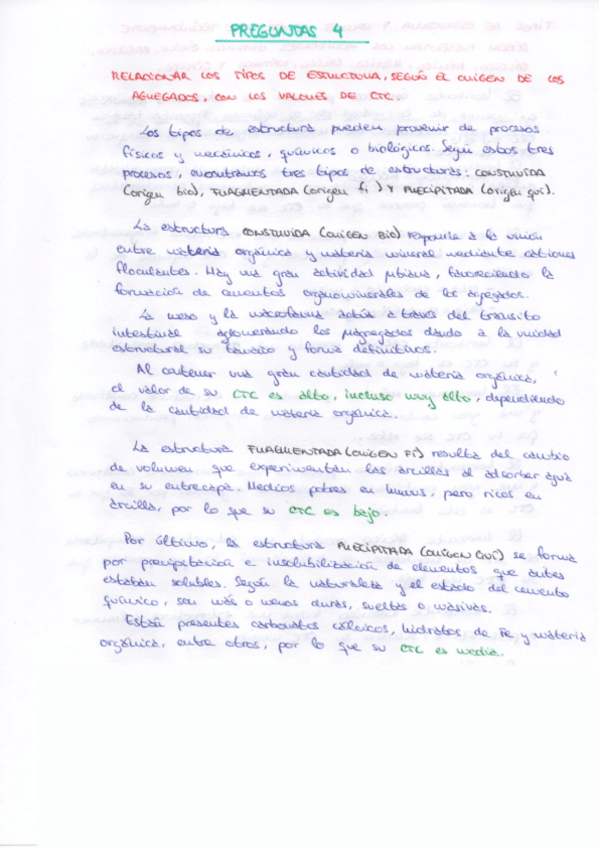 PREGUNTAS 4
RELACIONAR LOS TIPOS DE ESTRUCTURA, SEGÚN EL ORIGEN DE LOS
AGREGADOS, CON LOS VALORES DE CTC.
Los tipos de estructura pueden provenir de procesos
físicos y mecánicos, químicos o biológicos. Según estos tres
procesos, encontramos tres tipos de estructuras: CONSTRUIDA
(origen bio), FRAGMENTADA (origen fi) Y PRECIPITADA (origen qui).
La estructura CONSTRUIDA (ORIGEN BIO) responde a la unión
entre materia orgánica y materia mineral mediante cationes
floculantes. Hay una gran actividad μbiana, favoreciendo la
formación de cementos organominerales de los agregados.
La meso y la macrofauna actúa a través del tránsito
intestinal aglomerando los μagregados dando a la unidad
estructural su tamaño y forma definitivos.
Al contener una gran cantidad de materia orgánica,
el valor de su CTC es alto, incluso muy alto, dependiendo
de la cantidad de materia orgánica.
La estructura FRAGMENTADA (ORIGEN FI) resulta del cambio
de volumen que experimentan las arcillas al adsorber agua
en su entrecapa. Medios pobres en humus, pero ricos en
arcilla, por lo que su CTC es bajo.
Por último, la estructura PRECIPITADA (ORIGEN QUI) se forma
por precipitación e insolubilización de elementos que antes
estaban solubles. Según la naturaleza y el estado del cemento
químico, son más o menos duras, sueltas o masivas.
Están presentes carbonatos cálcicos, hidratos de Fe y materia
orgánica, entre otros, por lo que su CTC es media.